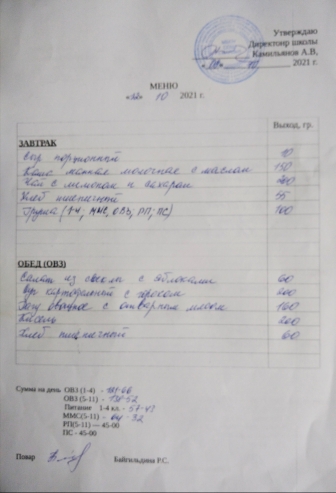 Утверждаю
Директоир школы
Камильянов А.В,
10 2021 г.
МЕНЮ
10 2021 г.
Выход, гр.
ЗАВТРАК
Сыр порционный 10
Каша манная молочная с маслом 150
Чай с лимоном и сахаром 200
Хлеб пшеничный
Груша (1-4, ММС, ОВЗ, РП, ПС) 100
ОБЕД (ОВЗ)
Салат из свеклы с яблоками 60
Суп картофельный с горохом 200
Рагу овощное с отварным мясом
Кисель 200
Хлеб пшеничный 60
Сумма на день ОВЗ (1-4) -
ОВЗ (5-11) -
Питание 1-4 кл. - 57-47
ММС(5-11) - 64-32
РП(5-11) — 45-00
ПС - 45-00
Повар Байгильдина Р.С.